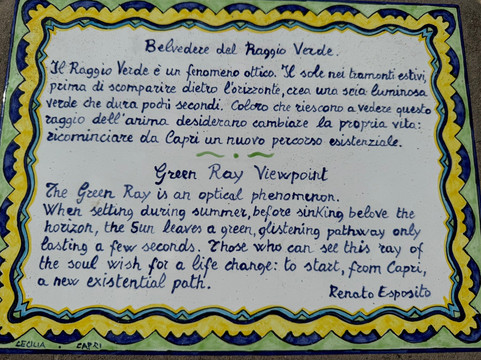 Belvedere del Raggio Verde.
Il Raggio Verde è un fenomeno ottico. Il sole nei tramonti estivi,
prima di scomparire dietro l'orizzonte, crea una scia luminosa
verde che dura pochi secondi. Coloro che riescono a vedere questo
raggio dell'anima desiderano cambiare la propria vita:
ricominciare da Capri un nuovo percorso esistenziale.
Green Ray Viewpoint
The Green Ray is an optical phenomenon.
When setting during summer, before sinking belove the
horizon, the Sun leaves a green, glistening pathway only
lasting a few seconds. Those who can see this ray of
the soul wish for a life change: to start, from Capri,
a new existential path.
Renato Esposito
CECILIA • CAPRI